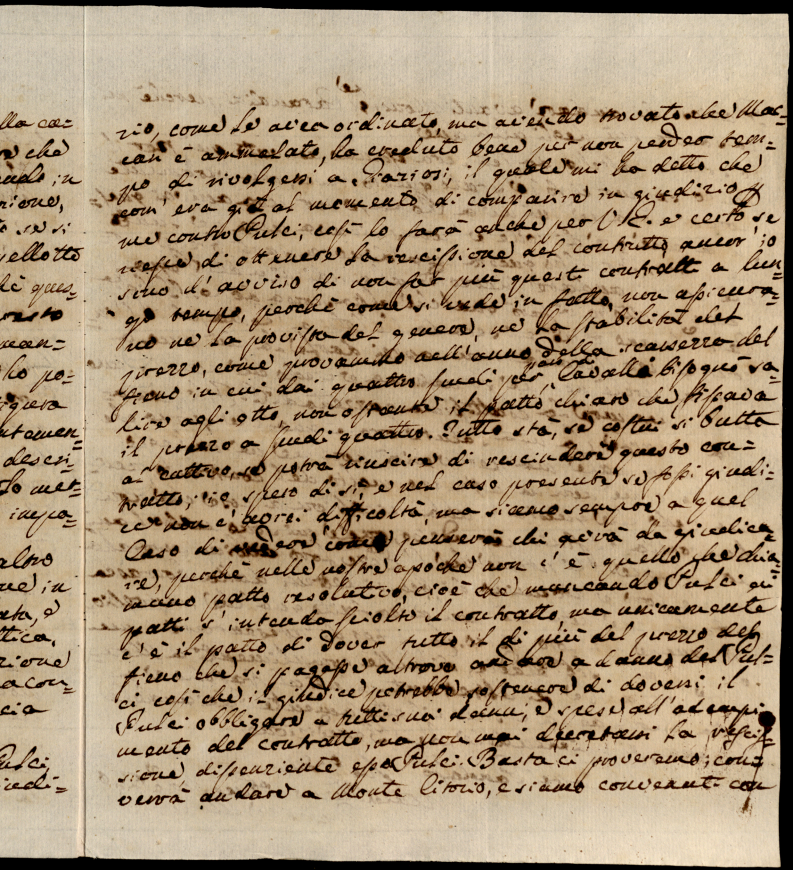 lla ca=
re che
endo in
nione,
to se si
vellotto
hè ques=
resto
man=
ho po=
figura
ntemen=
descri=
do met=
inpa=
altro
ne in
ata, è
ttica,
zione
a con=
cia
Pulci
iudi=
rio, come le avea ordinato, ma avendo trovato che Mac=
cari è ammalato, ha creduto bene per non perder tem=
po di rivolgersi a Graziosi, il quale mi ha detto che
com' era già al momento di comparire in giudizio p
me contro Pulci, così lo farà anche per V. E. e certo se
riesce di ottenere la rescissione del contratto, ancor' io
sino d' avviso di non far più questi contratti a lun=
go tempo, perchè come si vede in fatto, non assicura=
no ne la provista del genere, ne la stabilità del
prezzo, come provammo nell' anno della scarsezza del
fieno in cui dai quattro scudi per Cavallo bisognò sa=
lire agli otto, non ostante il patto chiaro che fissava
il prezzo a scudi quattro. Tutto stà, se costui si butta
al cattivo, se potrà riuscire di rescindere questo con=
tratto, io spero di sì, e nel caso presente se fossi giudi=
ce non ci avrei difficoltà, ma siamo sempre a quel
Caso di vedere come penserà chi avrà da giudica=
re, perchè nelle nostre apoche non c' è quello che chia=
mano patto resolutivo, cioè che mancando Pulci ai
patti s' intenda sciolto il contratto, ma unicamente
c' è il patto di dover tutto il di più del prezzo del
fieno che si pagasse altrove andare a danno del Pul=
ci così che il giudice potrebbe sostenere di doversi il
Pulci obbligare a tutti suoi danni, e spese all' adempi
mento del contratto, ma non mai decretarsi la rescis=
sione, dissenziente esso Pulci. Basta ci proveremo; con=
verrà andare a Monte Citorio, e siamo convenuti con